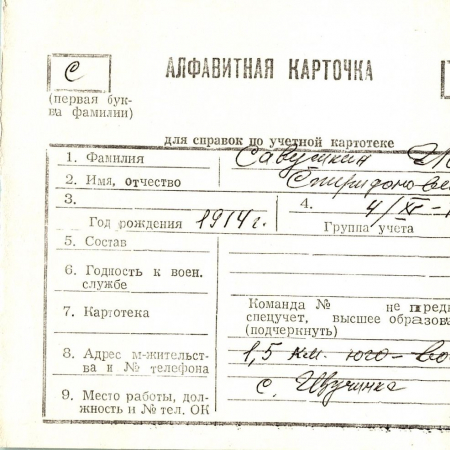 С
АЛФАВИТНАЯ КАРТОЧКА
(первая бук-
ва фамилии)
для справок по учетной картотеке
1. Фамилия Савушкин
2. Имя, отчество Спиридонове
3.
4. 4/XI-
Год рождения 1914г. Группа учета
5. Состав
6. Годность к воен.
службе
Команда № не предн
7. Картотека спецучет, высшее образова
(подчеркнуть)
8. Адрес м-жительст- 1,5 км. юго-во
ва и № телефона
с.
9. Место работы, дол-
жность и № тел. ОК